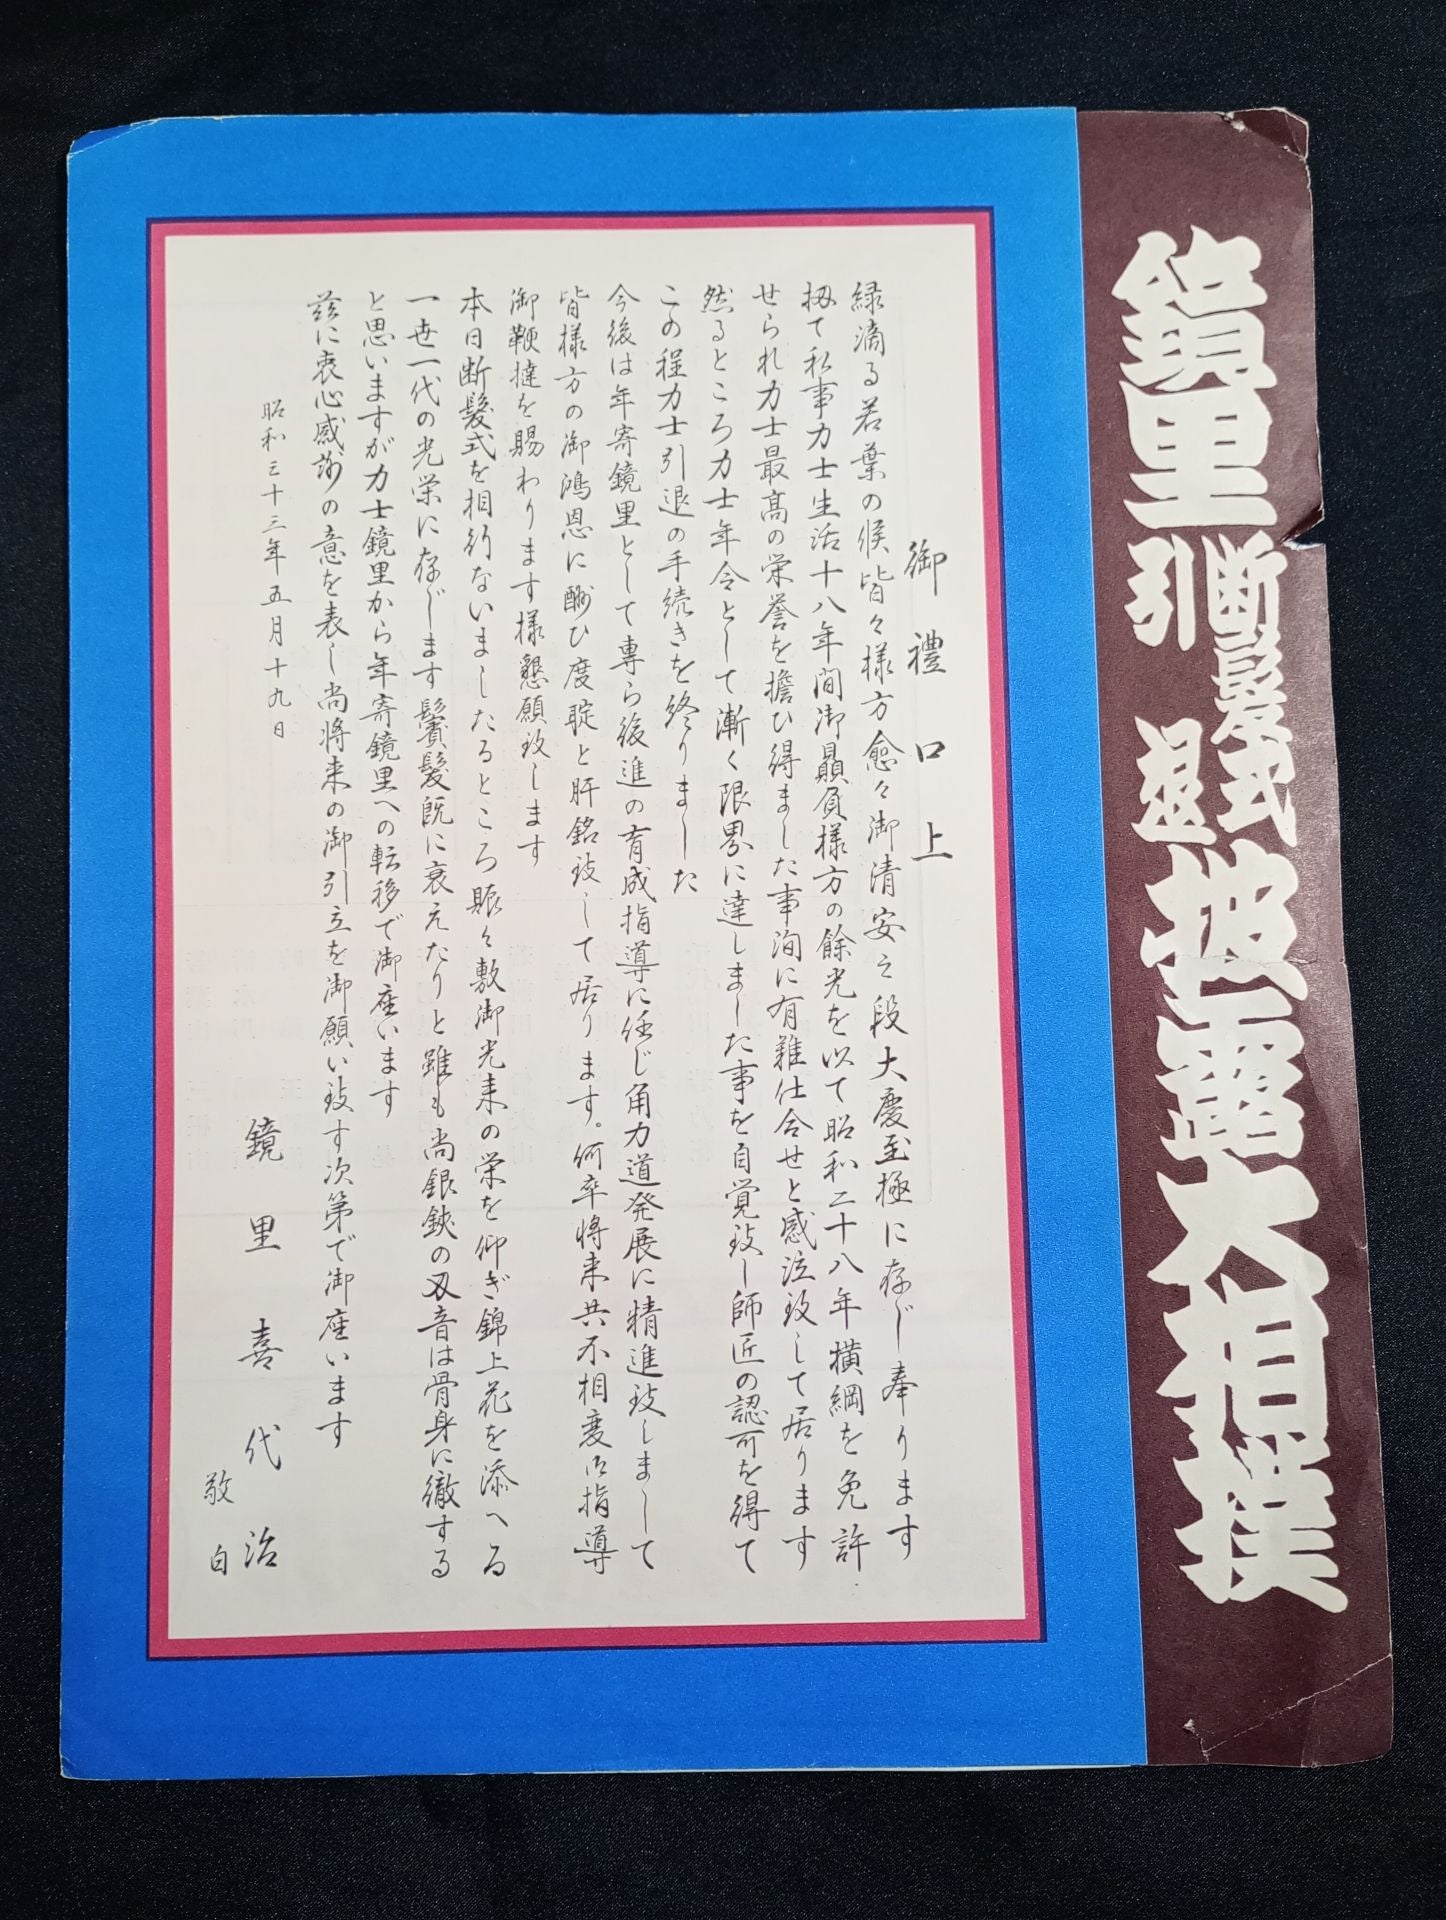 鏡里
断髪式
引退
披露大相撲
御禮口上
緑滴る若葉の候皆々様方愈々御清安之段大慶至極に存じ奉ります
扨て私事力士生活十八年間御贔屓様方の餘光を以て昭和二十八年横綱を免許
せられ力士最高の栄誉を擔ひ得ました事洵に有難仕合せと感泣致して居ります
然るところ力士年令として漸く限界に達しました事を自覚致し師匠の認可を得て
この程力士引退の手続きを終りました
今後は年寄鏡里として専ら後進の育成指導に任じ角力道発展に精進致しまして
皆様方の御鴻恩に酬ひ度聢と肝銘致して居ります。何卒将来共不相変御指導
御鞭撻を賜わります様懇願致します
本日断髪式を相行ないましたるところ賑々敷御光来の栄を仰ぎ錦上花を添へる
一世一代の光栄に存じます鬢髪既に衰えたりと雖も尚銀鋏の刃音は骨身に徹する
と思いますが力士鏡里から年寄鏡里への転移で御座います
茲に衷心感謝の意を表し尚将来の御引立を御願い致す次第で御座います
昭和三十三年五月十九日
鏡里喜代治
敬白